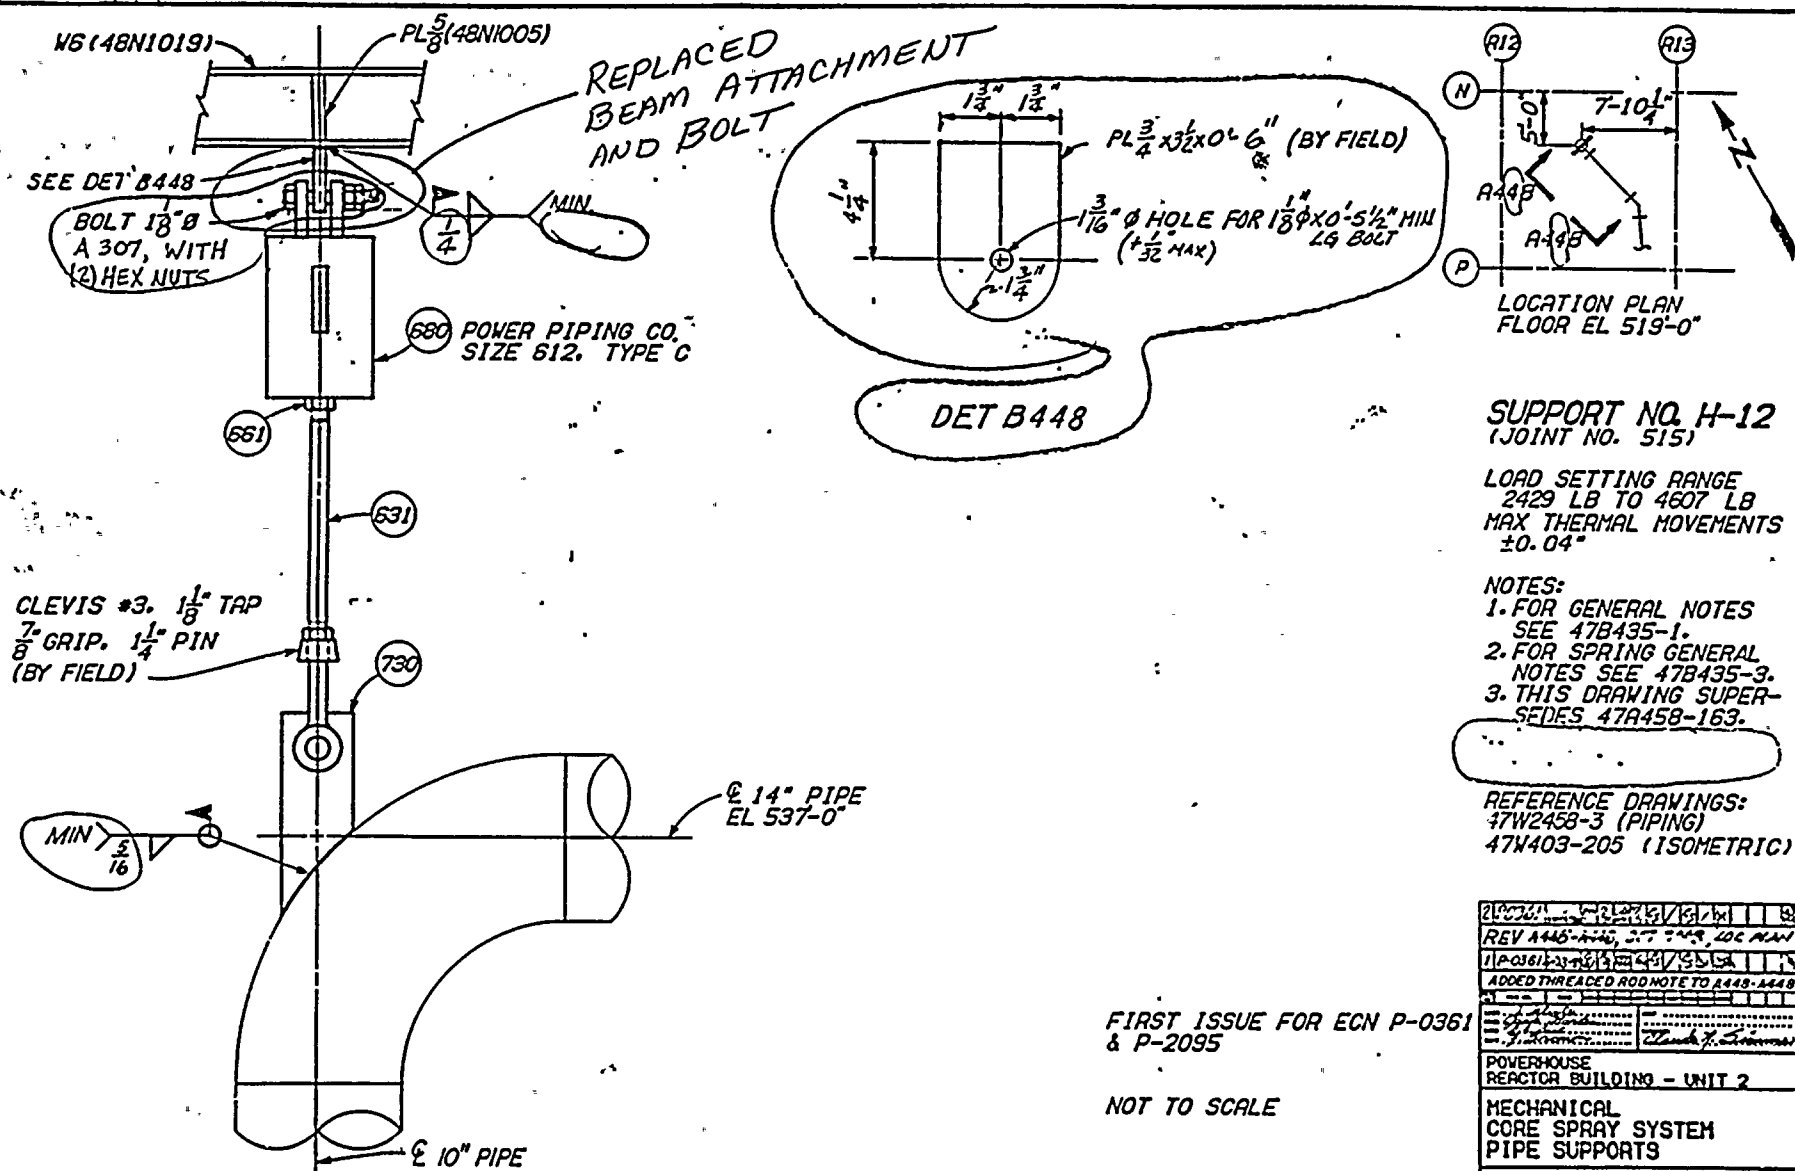 W6 (48N1019)
PL 5/8 (48N1005)
REPLACED
BEAM ATTACHMENT
AND BOLT
SEE DET B448
BOLT 1 1/8" Ø
A 307, WITH
(2) HEX NUTS
1/4
MIN.
680
POWER PIPING CO.
SIZE 612. TYPE C
661
631
CLEVIS #3. 1 1/8" TAP
7/8" GRIP. 1 1/4" PIN
(BY FIELD)
730
MIN
5/16
℄ 14" PIPE
EL 537'-0"
℄ 10" PIPE
1 3/4"
1 3/4"
PL 3/4 x 3 1/2 x 0'- 6" (BY FIELD)
4 1/4"
1 3/16" Ø HOLE FOR 1 1/8" Ø X 0'-5 1/2" MIN
LG BOLT
(+1/32 MAX)
1 3/4"
DET B448
R12
R13
N
P
5'-0"
7'-10 1/4"
A448
A448
N
LOCATION PLAN
FLOOR EL 519'-0"
SUPPORT NO. H-12
(JOINT NO. 515)
LOAD SETTING RANGE
2429 LB TO 4607 LB
MAX THERMAL MOVEMENTS
±0.04"
NOTES:
1. FOR GENERAL NOTES
SEE 47B435-1.
2. FOR SPRING GENERAL
NOTES SEE 47B435-3.
3. THIS DRAWING SUPER-
SEDES 47A458-163.
REFERENCE DRAWINGS:
47W2458-3 (PIPING)
47W403-205 (ISOMETRIC)
FIRST ISSUE FOR ECN P-0361
& P-2095
NOT TO SCALE
2
REV LOC PLAN
1 P-0361
ADDED THREADED ROD NOTE TO A448-A448
POWERHOUSE
REACTOR BUILDING - UNIT 2
MECHANICAL
CORE SPRAY SYSTEM
PIPE SUPPORTS